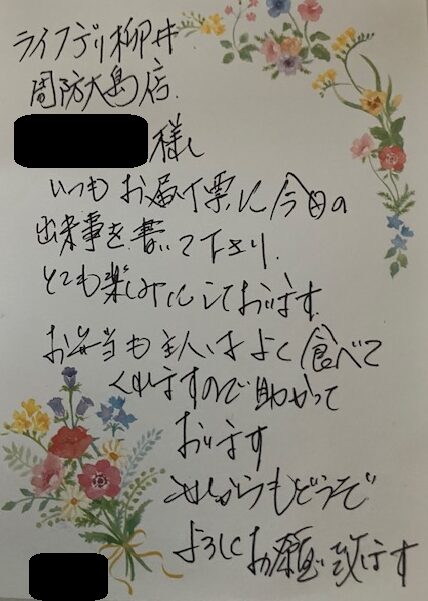 ライフデリ柳井
周防大島店
様
いつもお届け票に今日の
出来事を書いて下さり
とても楽しみにしております
お弁当も主人はよく食べて
くれますので助かって
おります
これからもどうぞ
よろしくお願い致します